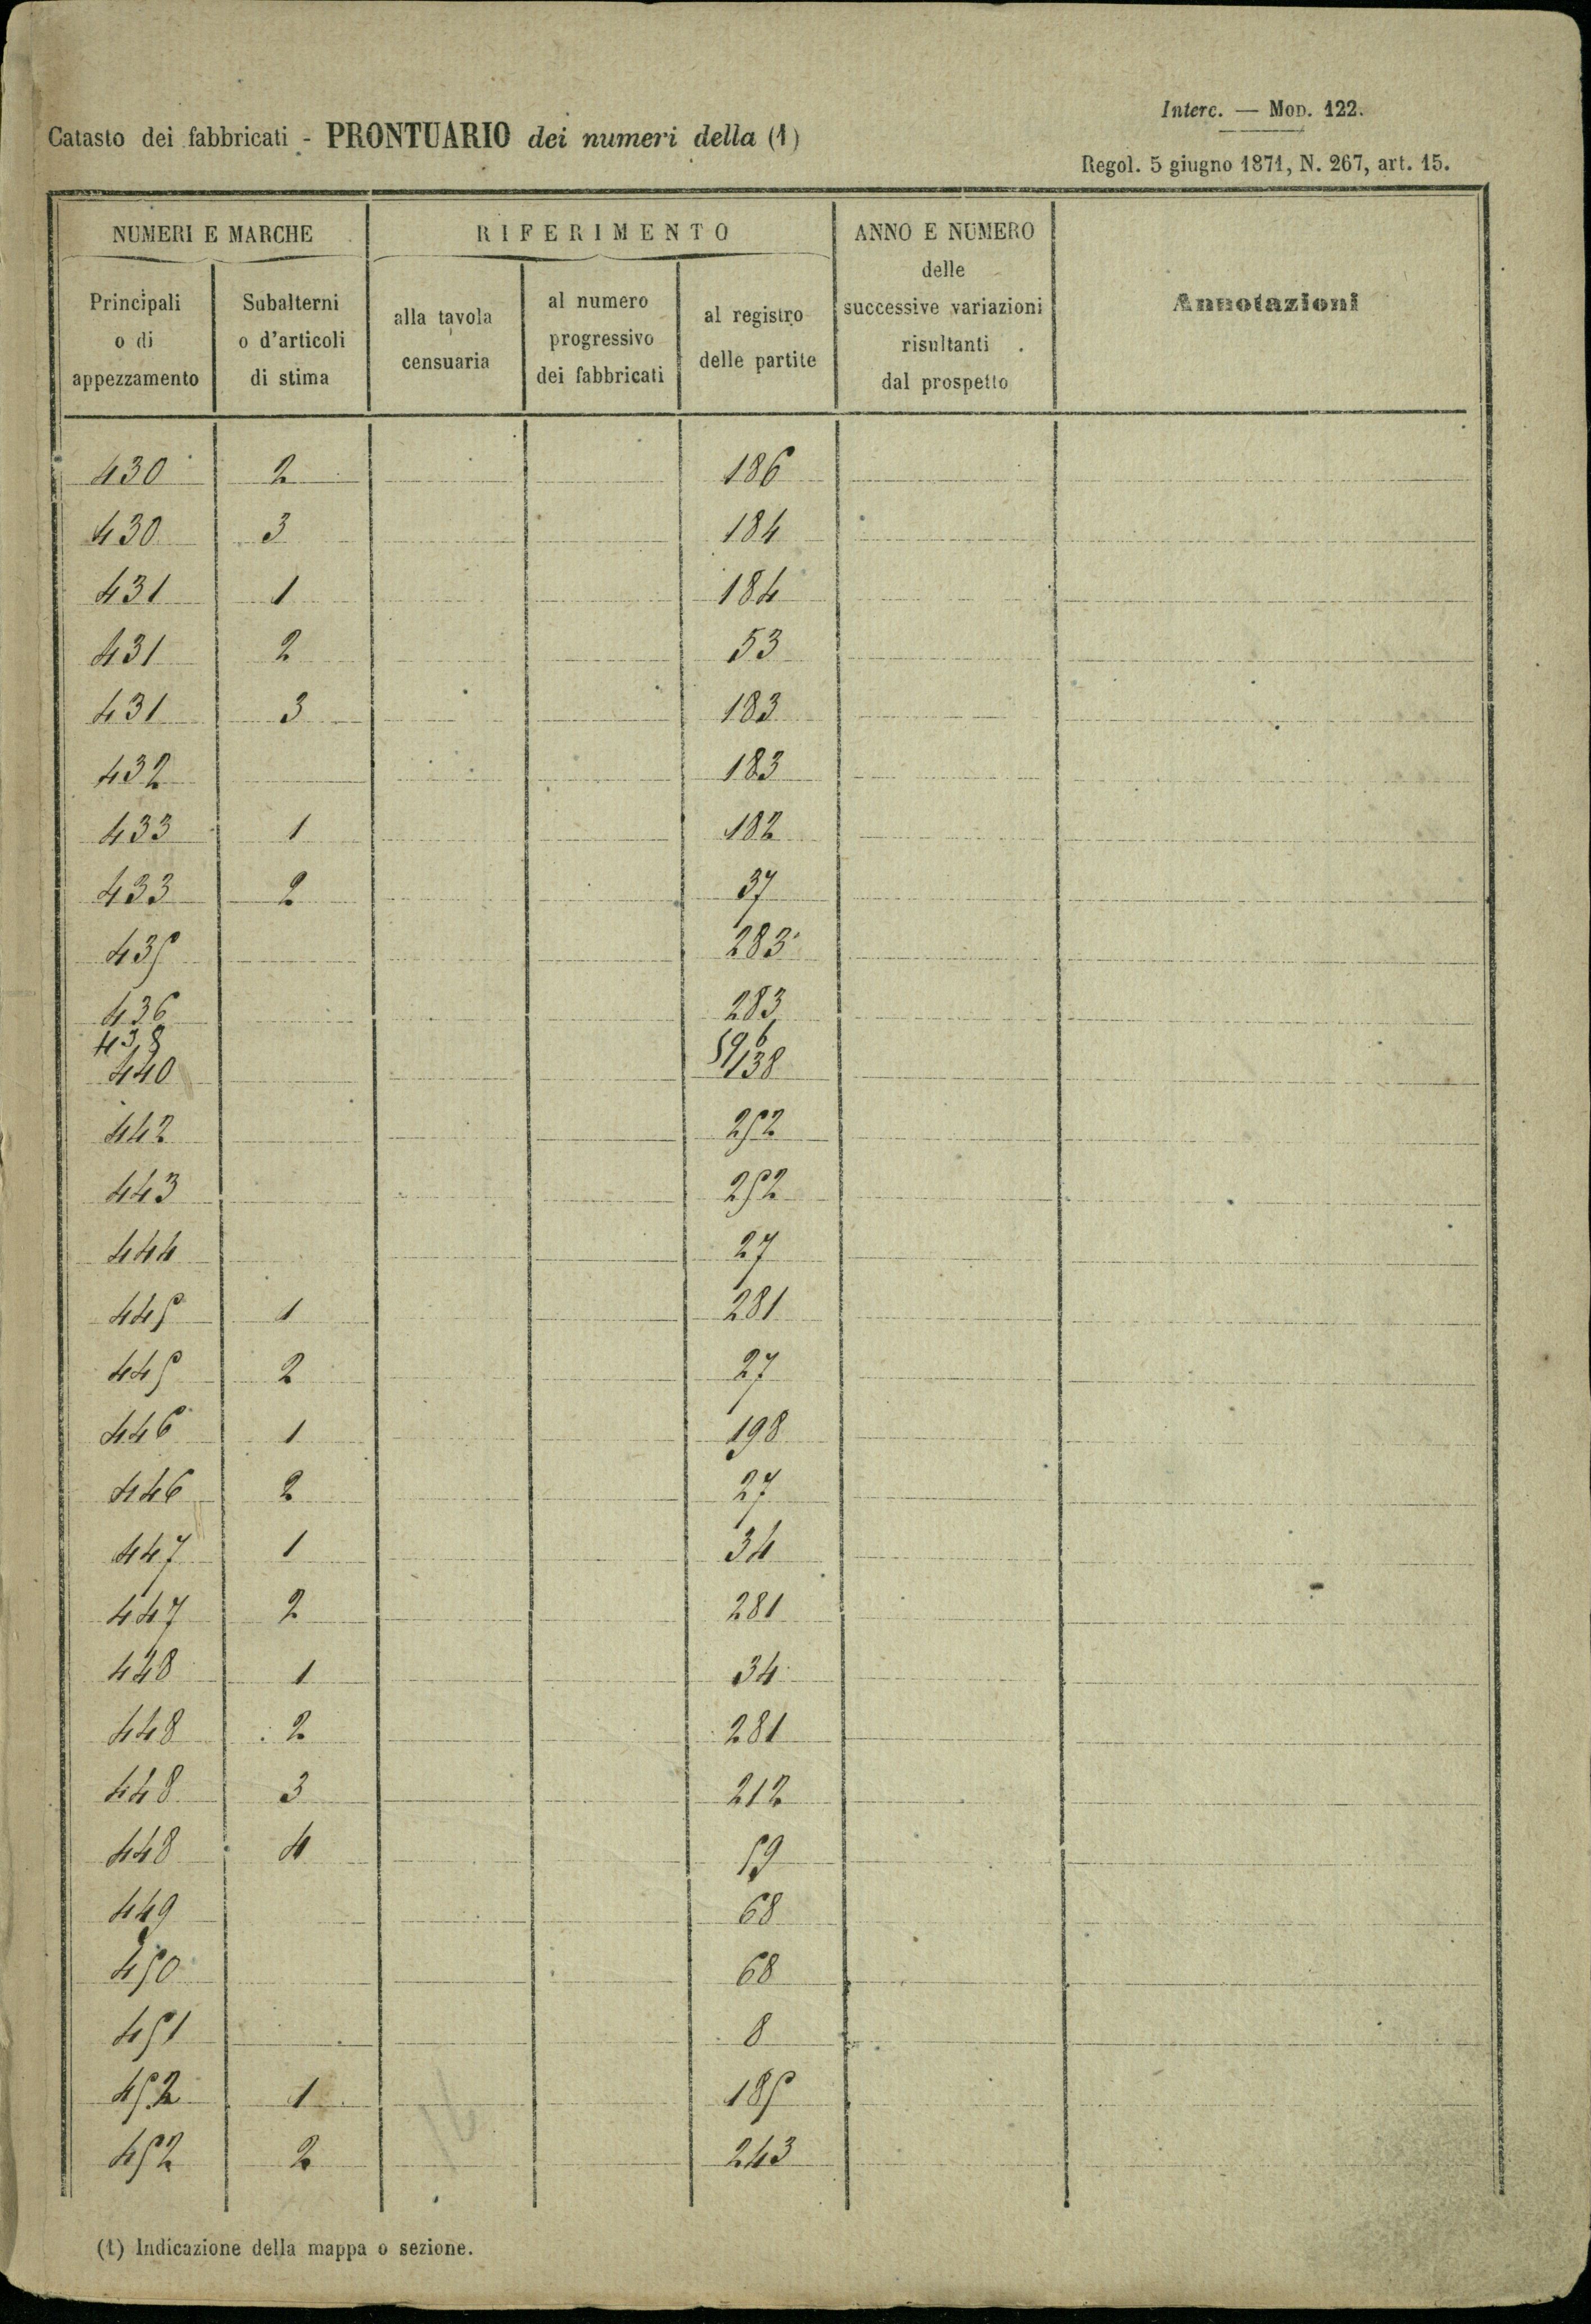 Interc. — Mod. 122.
Catasto dei fabbricati - PRONTUARIO dei numeri della (1)
Regol. 5 giugno 1871, N. 267, art. 15.
NUMERI E MARCHE RIFERIMENTO ANNO E NUMERO
delle
successive variazioni
risultanti
dal prospetto
Annotazioni
Principali
o di
appezzamento
Subalterni
o d'articoli
di stima
alla tavola
censuaria
al numero
progressivo
dei fabbricati
al registro
delle partite
430 2 186
430 3 184
431 1 184
431 2 53
431 3 183
432 183
433 1 182
433 2 37
435 283
436 283
438 596
440 138
442 252
443 252
444 27
445 1 281
445 2 27
446 1 198
446 2 27
447 1 34
447 2 281
448 1 34
448 2 281
448 3 212
448 4 59
449 68
450 68
451 8
452 1 185
452 2 243
(1) Indicazione della mappa o sezione.